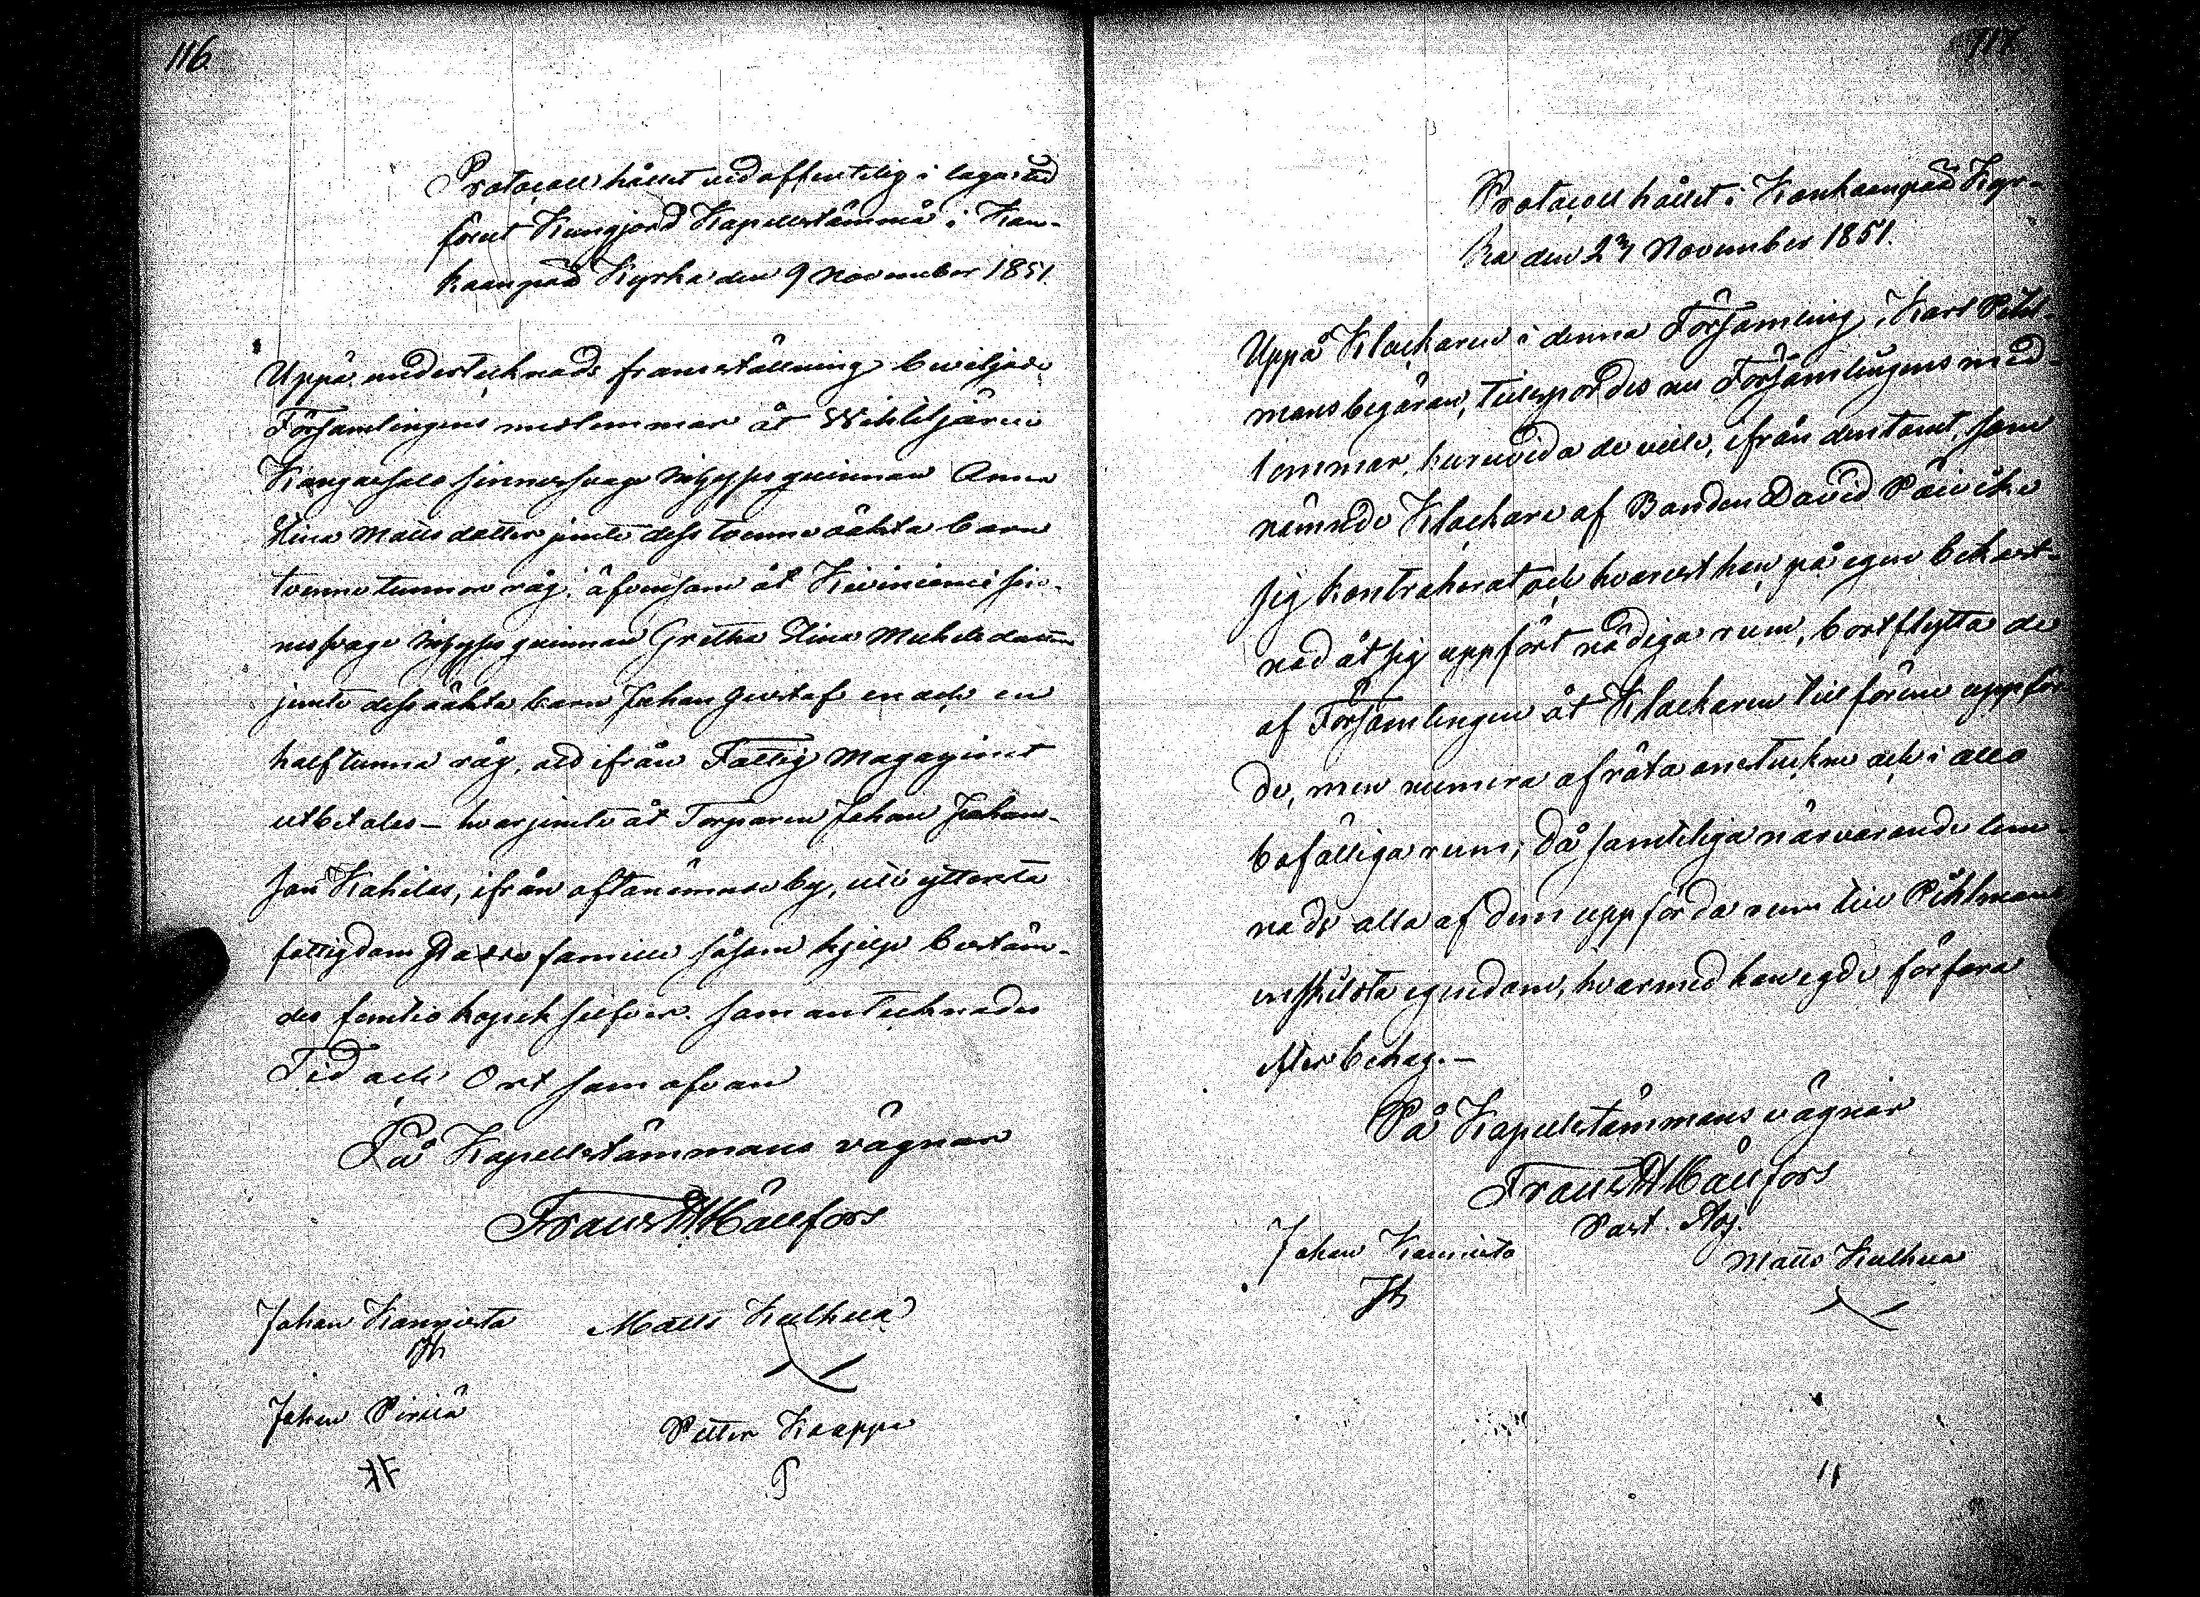 116
Protocoll hållet vid offentelig i laga tid
förut Kungjord Kapellstämma i Kan-
kaanpää Kyrka den 9 November 1851.
Uppå undertecknads framställning beviljade
Församlingens medlemmar åt Wihteljärvi
Kangasalo sinnessvage inhyses qvinnan Anna
Stina Matts dotter jemte dess tvenne oäkta barn
tvenne tunnor råg, äfvensom åt Kiviniemi sin-
nessvage inhyses qvinnan Gretha Stina Michels dotter
jemte dess oäkta barn Johan Gustaf en och en
half tunna råg, att ifrån Fattig Magazinet
utbetalas — hvarjemte åt Torparen Johan Johans-
son Kahilas, ifrån oftanämnde by, uti yttersta
fattigdom stadde familie såsom hjelp bestäm-
des femtio kopek silfver. som antecknades
Tid och Ort som ofvan
På Kapellstämmans vägnar
Frans H Hällfors
Johan Kannisto Matts Kulhua
Johan Pirilä Petter Knappe
P
117
Protocoll hållet i Kankaanpää Kyr-
ka den 23 November 1851.
Uppå Klockaren i denna Församling, Karl Pihl-
mans begäran, tillspordes nu Församlingens med-
lemmar, huruvida de ville, ifrån den tomt, som
nämnde Klockare af Bonden David Päivike
sig kontraherat och hvarest han på egen bekost-
nad åt sig uppfört nödiga rum, bortflytta de
af Församlingen åt Klockaren till förene uppför
de, men numera af röta anstuckne och i allo
bofälliga rum; Då samteliga närvarande lem-
nade alla af dem uppförda rum till Pihlmans
enskilsta egendom, hvarmed han egde förfara
efter behag. —
På Kapellstämmans vägnar
Frans H Hällfors
Past. Adj.
Johan Kannisto Matts Kulhua